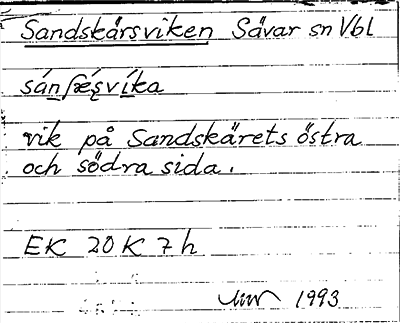 Sandskärsviken Sävar sn Vbl
vik på Sandskärets östra
och södra sida.
EK 20K 7h
1993